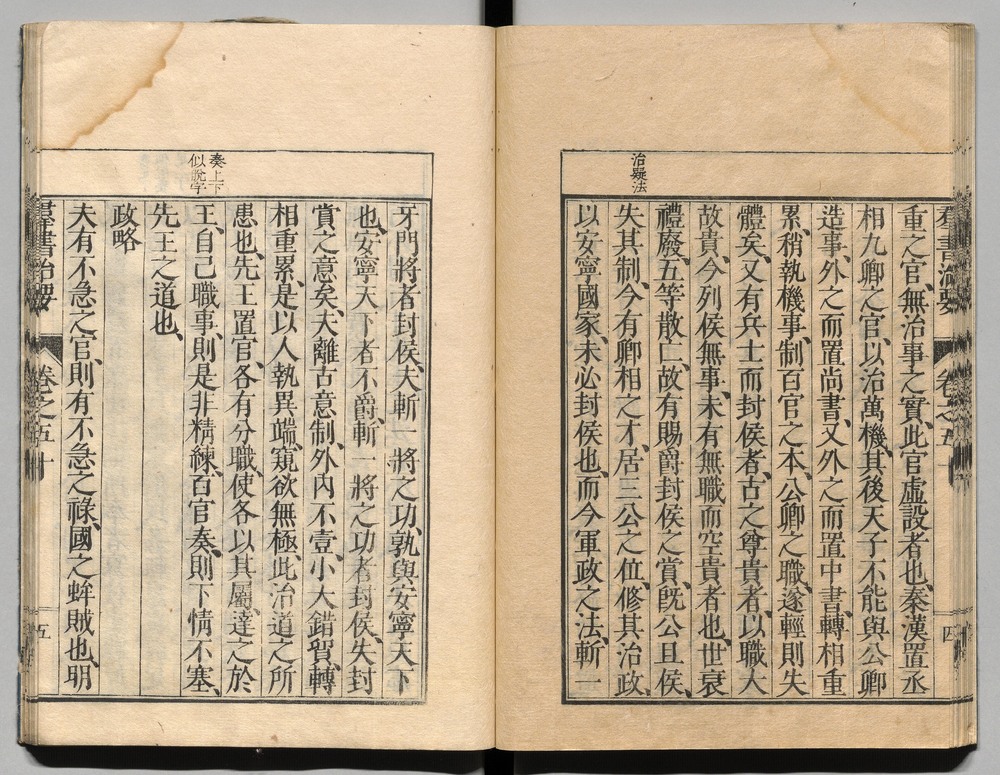 羣書治要 卷之五十 四
治疑法
重之官、無治事之實、此官虛設者也、秦漢置丞
相九卿之官、以治萬機、其後天子不能與公卿
造事、外之而置尚書、又外之而置中書、轉相重
累、稍執機事、制百官之本、公卿之職、遂輕則失
體矣、又有兵士而封侯者、古之尊貴者、以職大
故貴、今列侯無事、未有無職而空貴者也、世衰
禮廢、五等散亡、故有賜爵封侯之賞、旣公且侯、
失其制、今有卿相之才、居三公之位、修其治政、
以安寧國家、未必封侯也、而今軍政之法、斬一
奏上下
似脫字
牙門將者封侯、夫斬一將之功、孰與安寧天下
也、安寧天下者不爵、斬一將之功者封侯、失封
賞之意矣、夫離古意制、外內不壹、小大錯貿、轉
相重累、是以人執異端、窺欲無極、此治道之所
患也、先王置官、各有分職、使各以其屬、達之於
王、自己職事、則是非精練、百官奏、則下情不塞、
先王之道也、
政略
夫有不急之官、則有不急之祿、國之蛑賊也、明
羣書治要 卷之五十 五